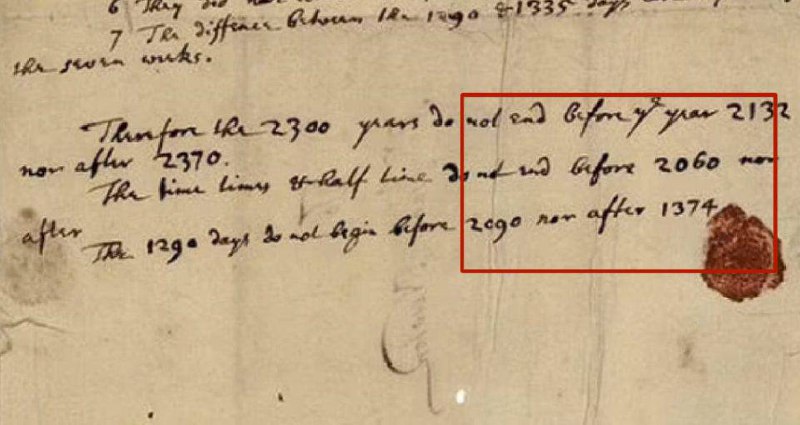 6 They did not
7 The diffence between the 1290 & 1335 days
the seven weeks.
Therefore the 2300 years do not end before ye year 2132
nor after 2370.
The time times & half time do not end before 2060 nor
after
The 1290 days do not begin before 2090 nor after 1374